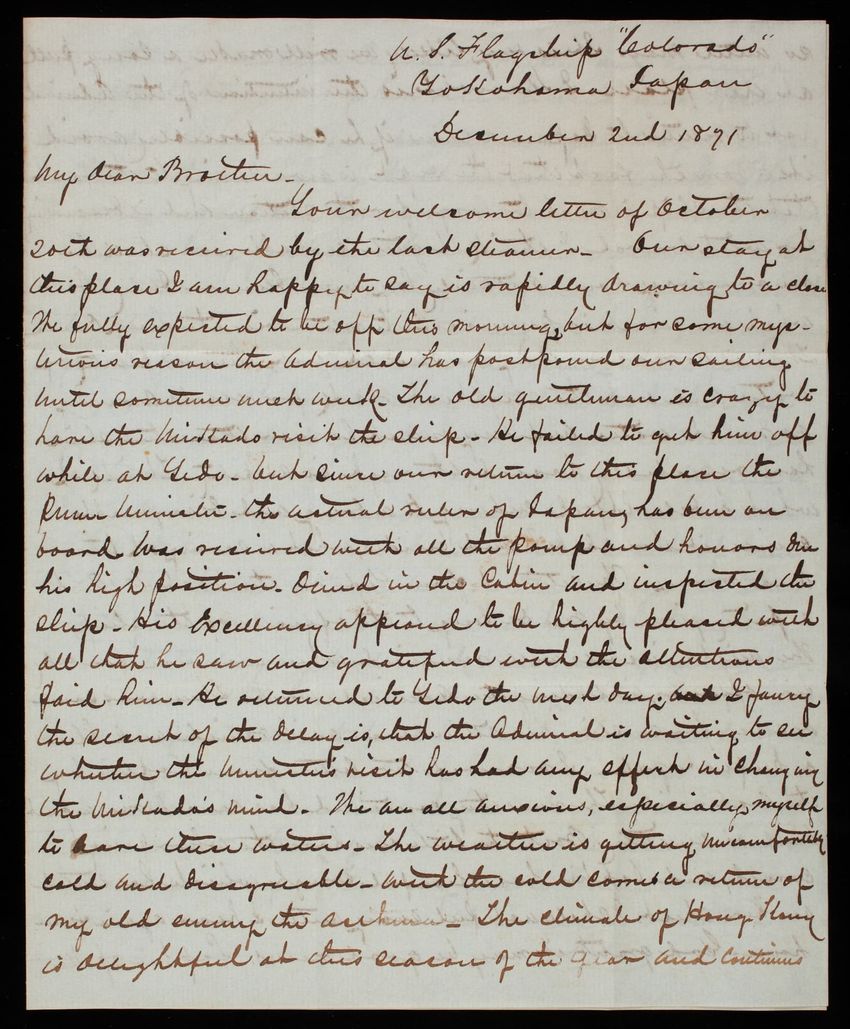 U. S. Flagship "Colorado"
Yokohama Japan
December 2nd 1871
My dear Brother-
Your welcome letter of October
20th was received by the last steamer- Our stay at
this place I am happy to say is rapidly drawing to a close
We fully expected to be off this morning, but for some mys-
terious reason the Admiral has postponed our sailing
until sometime next week- The old gentleman is crazy to
have the Mikado visit the ship- He failed to get him off
while at Yedo- but since our return to this place the
Prime Minister- the actual ruler of Japan, has been on
board. Was received with all the pomp and honors due
his high position- Dined in the Cabin and inspected the
ship- His Excellency appeared to be highly pleased with
all that he saw and gratified with the attentions
paid him- He returned to Yedo the next day. I fancy
the secret of the delay is, that the Admiral is waiting to see
whether the Minister's visit has had any effect in changing
the Mikado's mind- We are all anxious, especially myself
to leave these waters- The weather is getting uncomfortably
cold and disagreeable- with the cold comes a return of
my old enemy the asthma- The climate of Hong Kong
is delightful at this season of the year and continues